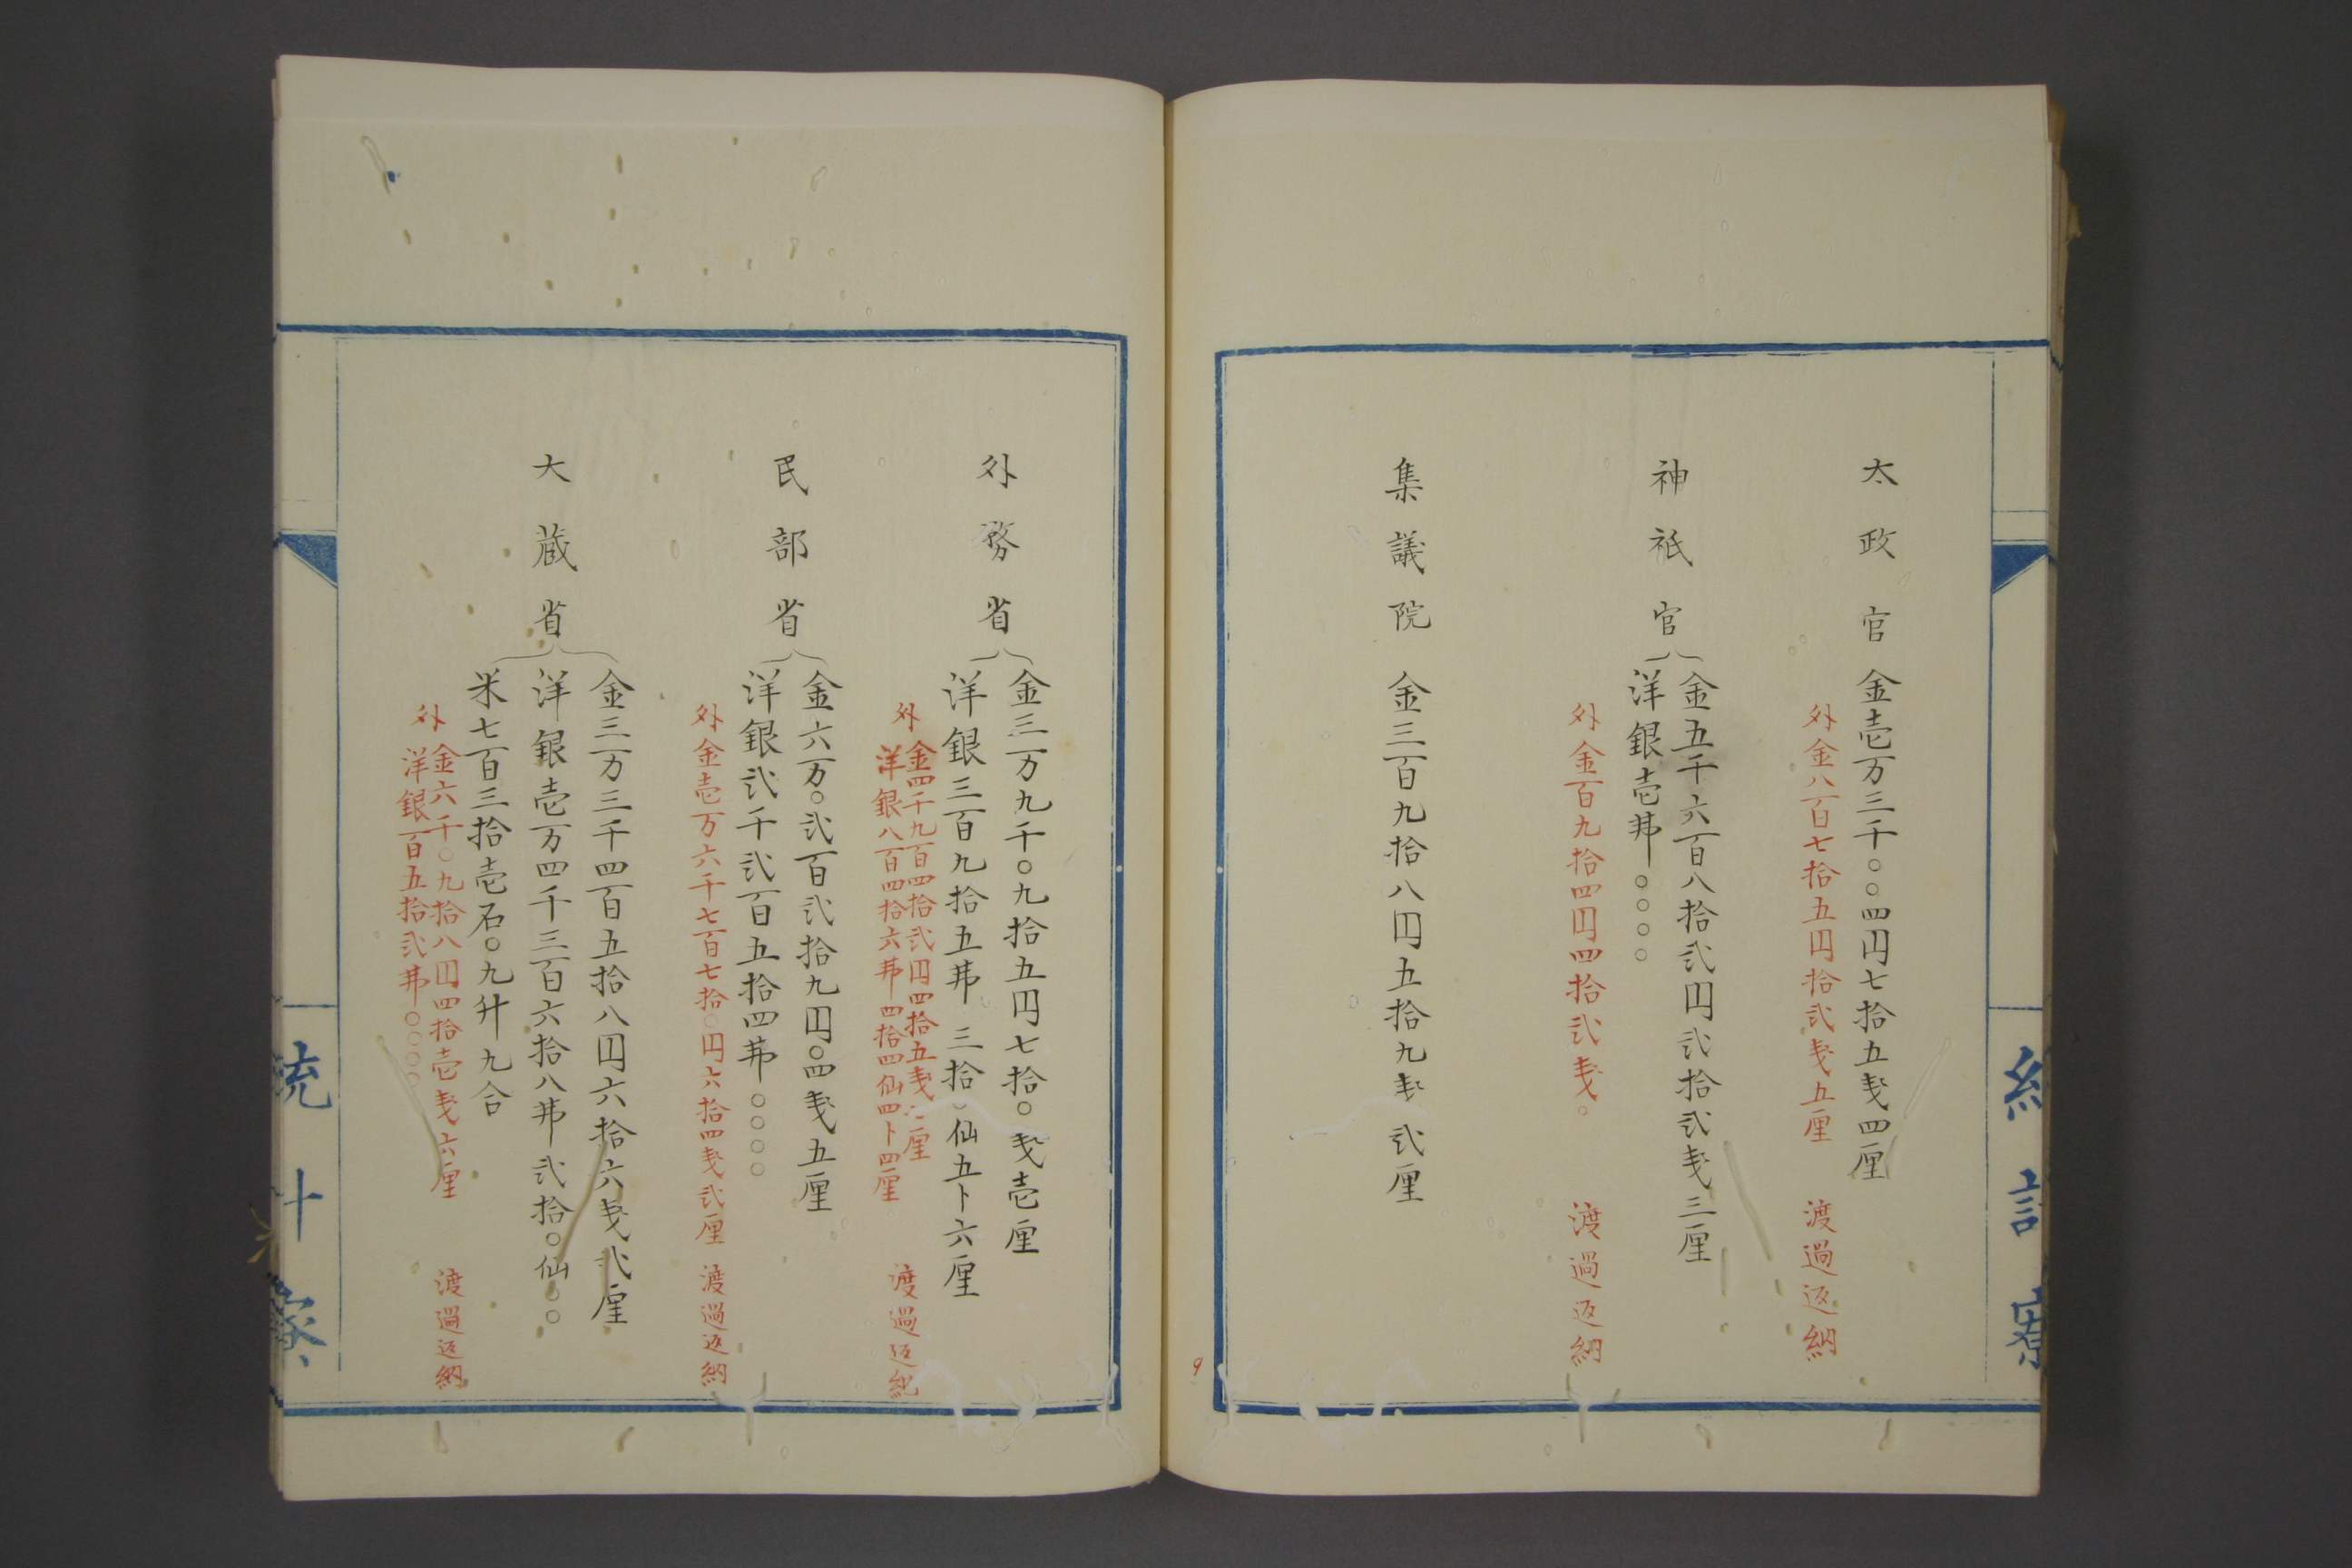 太政官 金壱万三千〇〇四円七拾五戋四厘
外金八百七拾五円拾弐戋五厘 渡過返納
神祇官
金五千六百八拾弐円弐拾弐戋三厘
洋銀壱弗〇〇〇〇
外金百九拾四円四拾弐戋〇 渡過返納
集議院 金三百九拾八円五拾九戋弐厘
外務省
金三万九千〇九拾五円七拾〇戋壱厘
洋銀三百九拾五弗三拾 仙五卜六厘
外
金四千九百四拾弐円四拾五戋 厘
洋銀八百四拾六弗四拾四仙四卜四厘
渡過返納
民部省
金六万〇弐百弐拾九円〇四戋五厘
洋銀弐千弐百五拾四弗〇〇〇〇
外金壱万六千七百七拾〇円六拾四戋弐厘 渡過返納
大蔵省
金三万三千四百五拾八円六拾六戋弐厘
洋銀壱万四千三百六拾八弗弐拾〇仙〇〇
米七百三拾壱石〇九升九合
外
金六千〇九拾八円四拾壱戋六厘
洋銀百五拾弐弗〇〇〇〇
渡過返納
統計寮
9